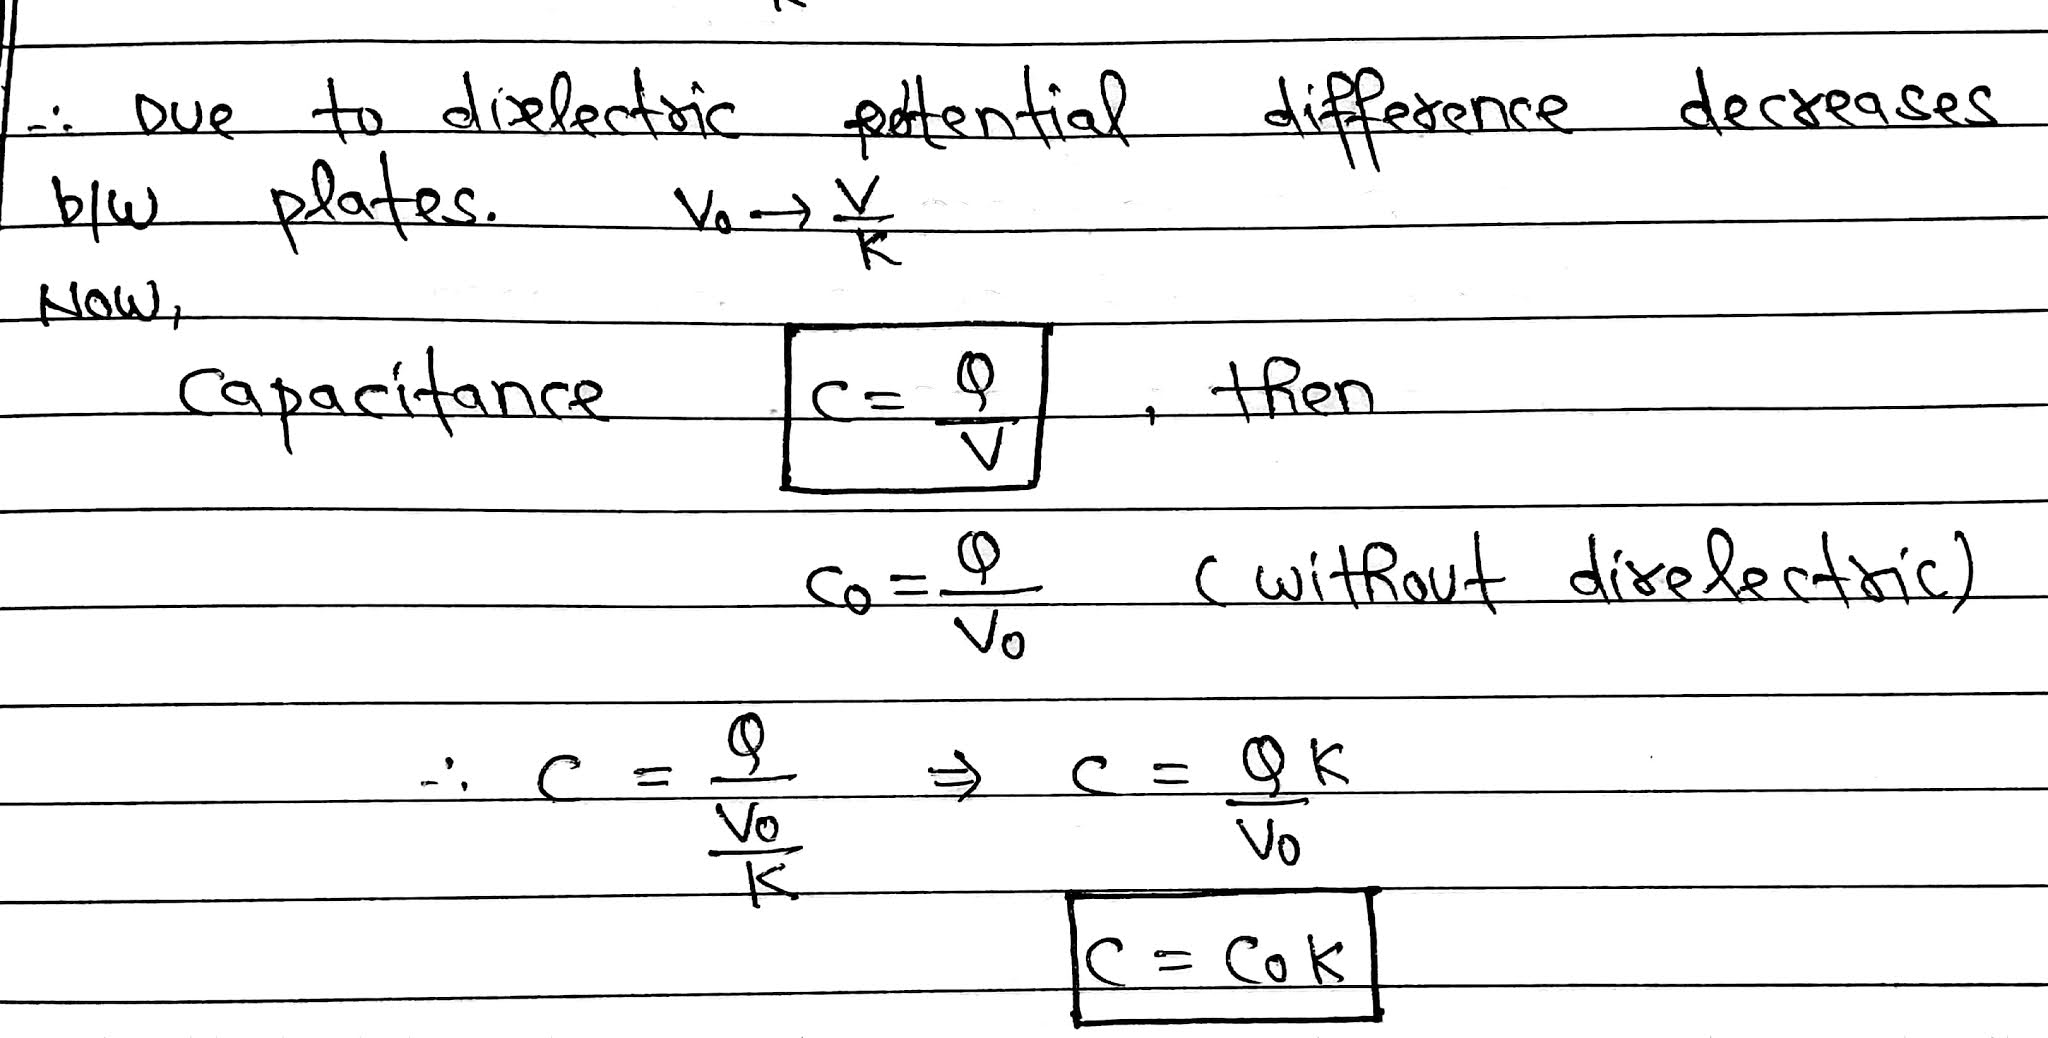 ∴ Due to dielectric potential difference decreases
b/w plates. V₀ → V/K
Now,
Capacitance C = Q/V , then
C₀ = Q/V₀ (without dielectric)
∴ C = Q/(V₀/K) ⇒ C = QK/V₀
C = C₀K